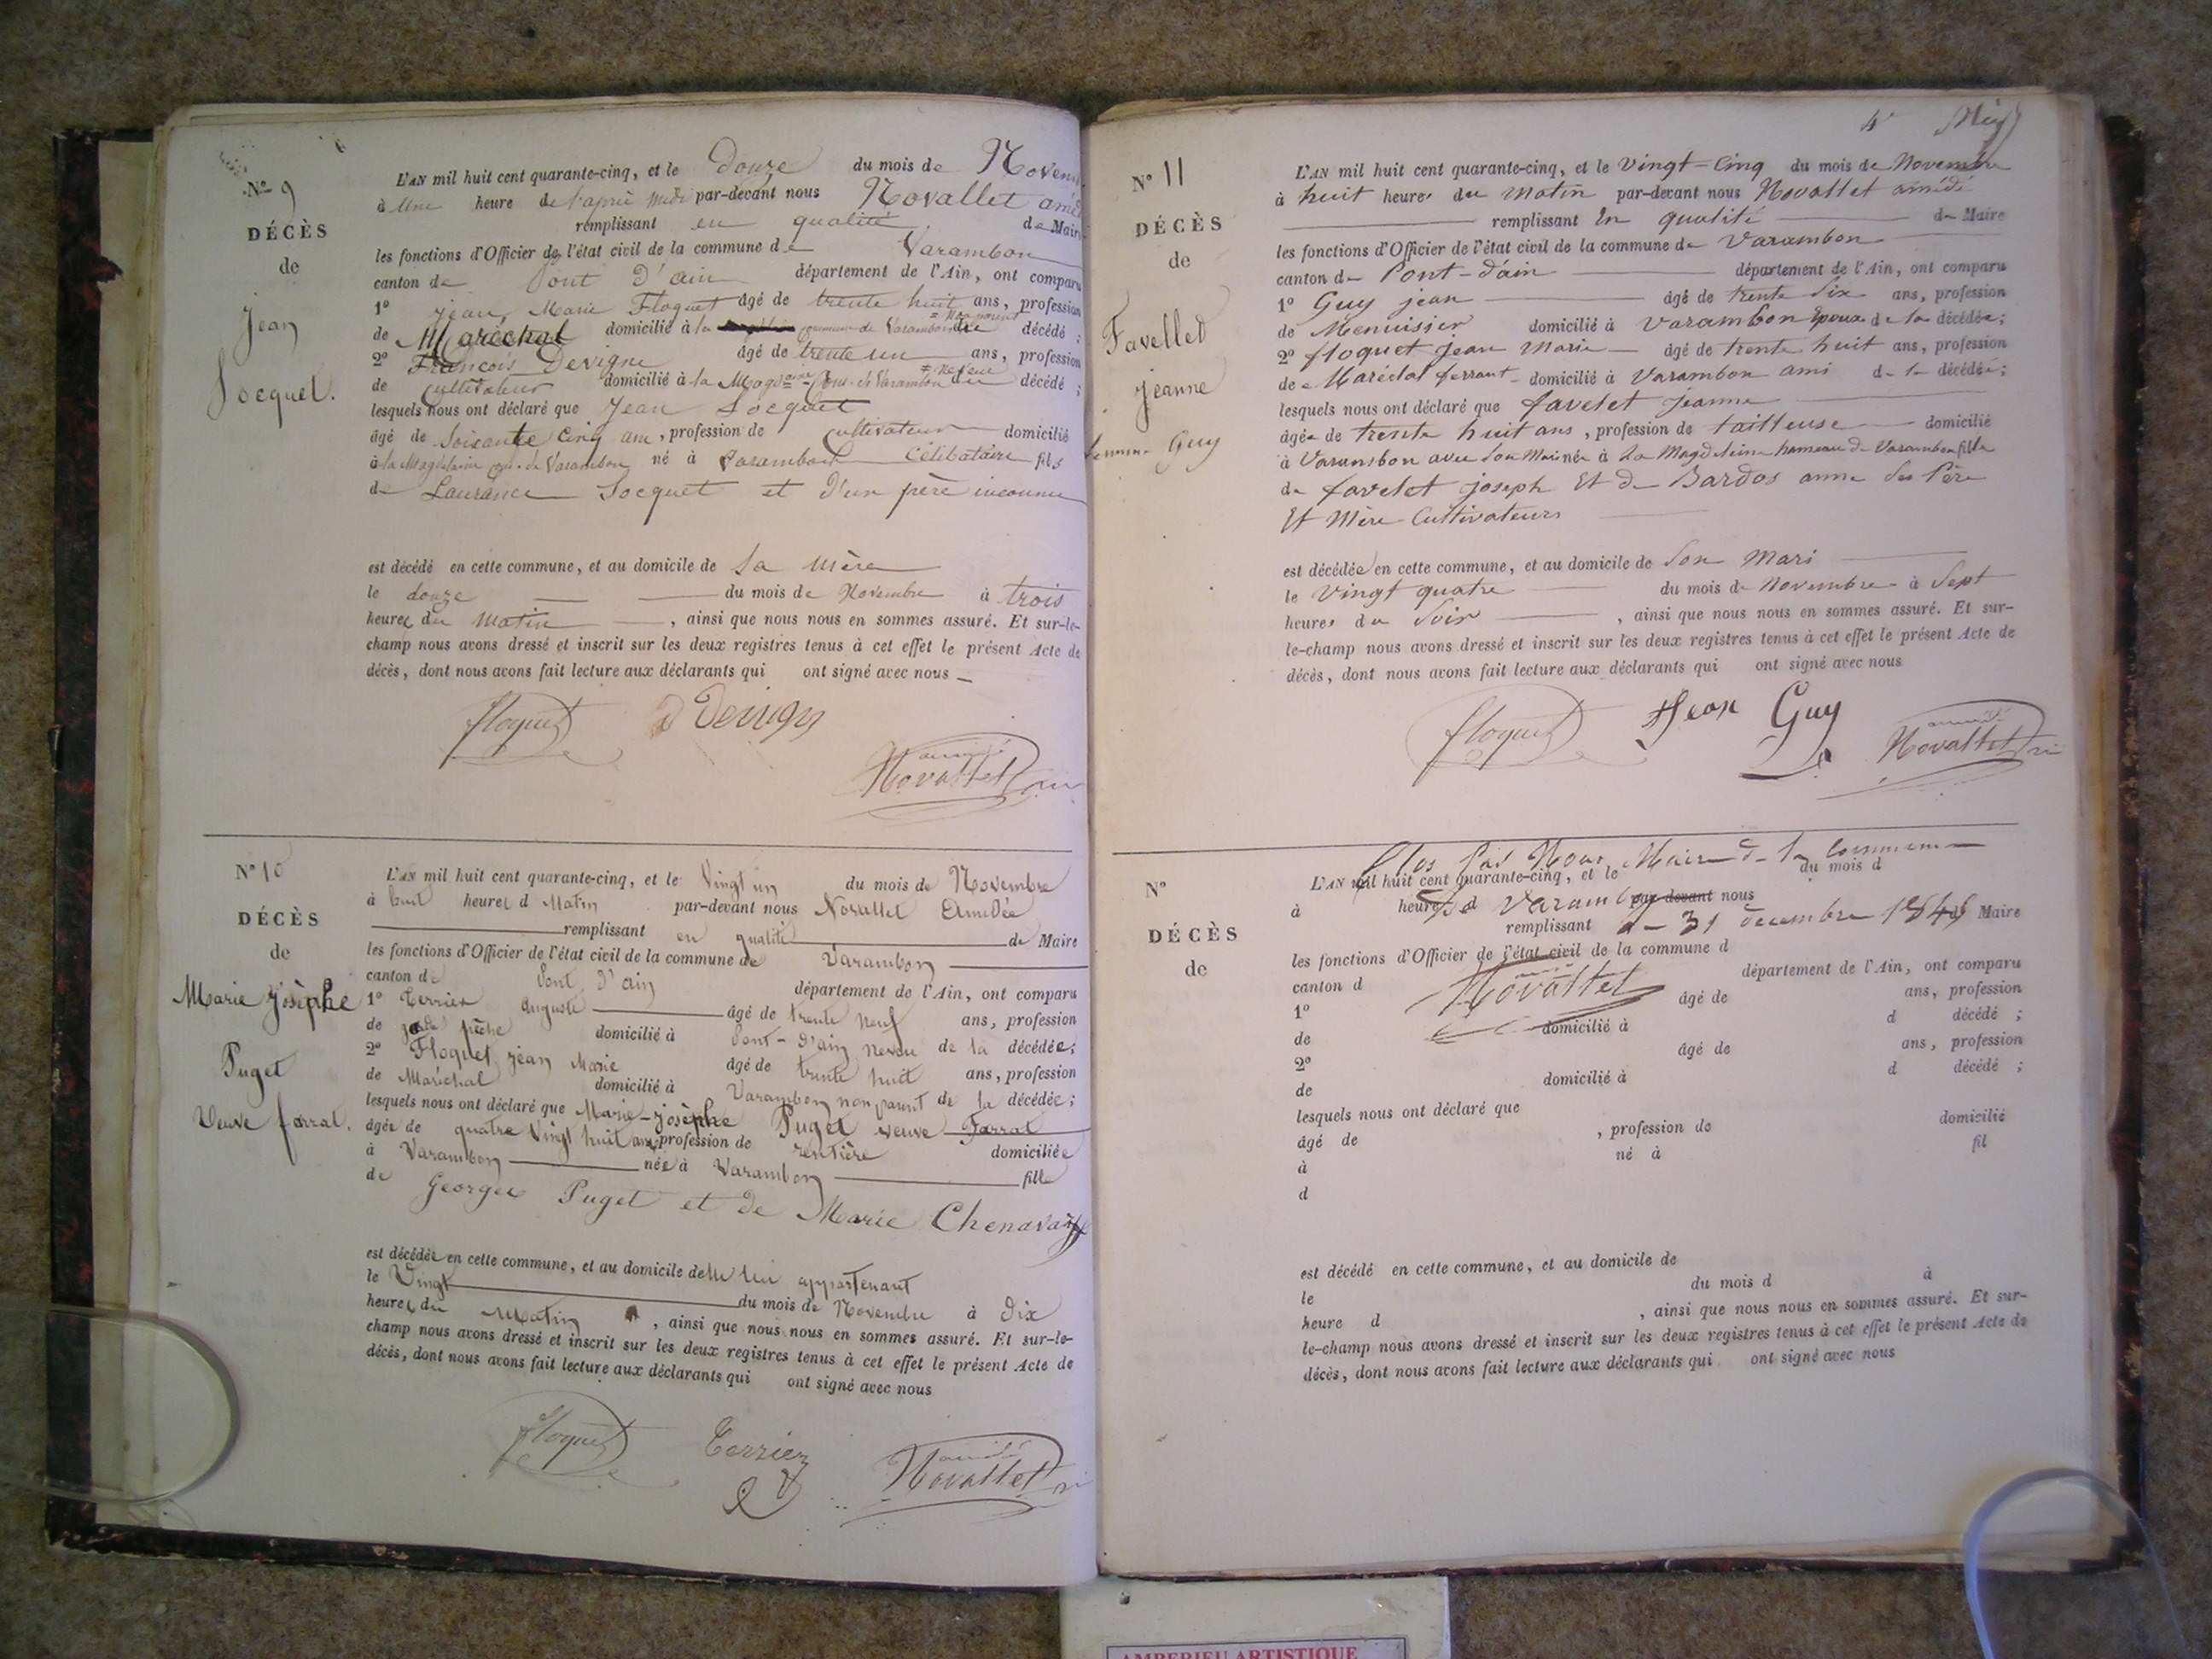 N° 9
DÉCÈS
de
Jean
Socquet.
L'AN mil huit cent quarante-cinq, et le Douze du mois de Novem
à Une heure de l'après midi par-devant nous Novallet amé
remplissant en qualité de Maire
les fonctions d'Officier de l'état civil de la commune de Varambon
canton de Pont d'ain département de l'Ain, ont comparu
1° jean Marie Floquet âgé de trente huit ans, profession
de Maréchal domicilié à la commune de Varambon = non parent du décédé ;
2° François Devigne âgé de trente un ans, profession
de Cultivateur domicilié à la Magdne Com. de Varambon = neveu du décédé ;
lesquels nous ont déclaré que Jean Socquet
âgé de Soixante Cinq ans, profession de Cultivateur domicilié
à la Magdelaine com. de Varambon né à Varambon Célibataire fils
de Laurance Socquet et D'un père inconnu
est décédé en cette commune, et au domicile de Sa Mère
le douze du mois de Novembre à trois
heures du Matin, ainsi que nous nous en sommes assuré. Et sur-le-
champ nous avons dressé et inscrit sur les deux registres tenus à cet effet le présent Acte de
décès, dont nous avons fait lecture aux déclarants qui ont signé avec nous
floquet Devigne
amédé
Novallet
N° 10
DÉCÈS
de
Marie Josèphe
Puget
Veuve farrat.
L'AN mil huit cent quarante-cinq, et le Vingt un du mois de Novembre
à huit heures d Matin par-devant nous Novallet Amédée
remplissant en qualité de Maire
les fonctions d'Officier de l'état civil de la commune de Varambon
canton de Pont d'ain département de l'Ain, ont comparu
1° Terrier Auguste âgé de trente neuf ans, profession
de garde pêche domicilié à Pont-d'ain neveu de la décédée ;
2° Floquet jean Marie âgé de trente huit ans, profession
de Maréchal domicilié à Varambon non parent de la décédée ;
lesquels nous ont déclaré que Marie-josèphe Puget veuve Farrat
âgée de quatre Vingt huit ans, profession de rentière domiciliée
à Varambon née à Varambon fille
de Georges Puget et de Marie
est décédée en cette commune, et au domicile delle lui appartenant
le Vingt du mois de Novembre à dix
heures du Matin, ainsi que nous nous en sommes assuré. Et sur-le-
champ nous avons dressé et inscrit sur les deux registres tenus à cet effet le présent Acte de
décès, dont nous avons fait lecture aux déclarants qui ont signé avec nous
floquet Terrier
amédé
Novallet
4e
N° 11
DÉCÈS
de
Favellet
jeanne
femme Guy
L'AN mil huit cent quarante-cinq, et le Vingt-Cinq du mois de Novembre
à huit heures du Matin par-devant nous Novallet amédé
remplissant En qualité de Maire
les fonctions d'Officier de l'état civil de la commune de Varambon
canton de Pont-d'ain département de l'Ain, ont comparu
1° Guy jean âgé de trente Six ans, profession
de Menuisier domicilié à Varambon Epoux de la décédée ;
2° floquet jean Marie âgé de trente huit ans, profession
de Maréchal ferrant domicilié à Varambon ami de la décédée ;
lesquels nous ont déclaré que favelet jeanne
âgée de trente huit ans, profession de tailleuse domicilié
à Varambon avec son Mari née à La Magdeleine hameau de Varambon fille
de favelet joseph Et de Bardos anne Ses Père
Et Mère Cultivateurs
est décédée en cette commune, et au domicile de Son Mari
le Vingt quatre du mois de Novembre à Sept
heures du Soir, ainsi que nous nous en sommes assuré. Et sur-
le-champ nous avons dressé et inscrit sur les deux registres tenus à cet effet le présent Acte de
décès, dont nous avons fait lecture aux déclarants qui ont signé avec nous
floquet Jean Guy
amédé
Novallet
N°
DÉCÈS
de
Clos Par Nous Maire de la Commune
L'AN mil huit cent quarante-cinq, et le du mois d
à heure d par-devant nous
de Varambon
remplissant de Maire
le 31 décembre 1845
les fonctions d'Officier de l'état civil de la commune d
Novallet
canton d département de l'Ain, ont comparu
1° âgé de ans, profession
de domicilié à d décédé ;
2° âgé de ans, profession
de domicilié à d décédé ;
lesquels nous ont déclaré que
âgé de , profession de domicilié
à né à fil
d
est décédé en cette commune, et au domicile de
le du mois d à
heure d , ainsi que nous nous en sommes assuré. Et sur-
le-champ nous avons dressé et inscrit sur les deux registres tenus à cet effet le présent Acte de
décès, dont nous avons fait lecture aux déclarants qui ont signé avec nous
AMBERIEU ARTISTIQUE